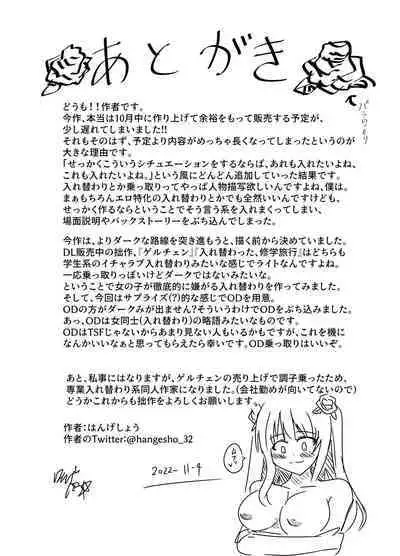 あとがき
バラのつもり
どうも！！作者です。
今作、本当は10月中に作り上げて余裕をもって販売する予定が、
少し遅れてしまいました!!
それもそのはず、予定より内容がめっちゃ長くなってしまったというのが
大きな理由です。
「せっかくこういうシチュエーションをするならば、あれも入れたいよね、
これも入れたいよね。」という風にどんどん追加していった結果です。
入れ替わりとか乗っ取りってやっぱ人物描写欲しいんですよね、僕は。
まぁもちろんエロ特化の入れ替わりとかでも全然いいんですけども、
せっかく作るならということでそう言う系を入れまくってしまい、
場面説明やバックストーリーをぶち込んでしまった。
今作は、よりダークな路線を突き進もうと、描く前から決めていました。
DL販売中の拙作、『ゲルチェン』『入れ替わった、修学旅行』はどちらも
学生系のイチャラブ入れ替わりみたいな感じでライトなんですよね。
一応乗っ取りっぽいけどダークではないみたいな。
ということで女の子が徹底的に嫌がる入れ替わりを作ってみました。
そして、今回はサプライズ(?)的な感じでODを用意。
ODの方がダークみが出ません?そういうわけでODをぶち込みました。
あっ、ODは女同士(入れ替わり)の略語みたいなものです。
ODはTSFじゃないからあまり見ない人もいるかもですが、これを機に
なんかいいなぁと思ってもらえたら幸いです。OD乗っ取りはいいぞ。
あと、私事にはなりますが、ゲルチェンの売り上げで調子乗ったため、
専業入れ替わり系同人作家になりました。(会社勤めが向いてないので)
どうかこれからも拙作をよろしくお願いします。
作者：はんげしょう
作者のTwitter：@hangesho_32
2022-11-4